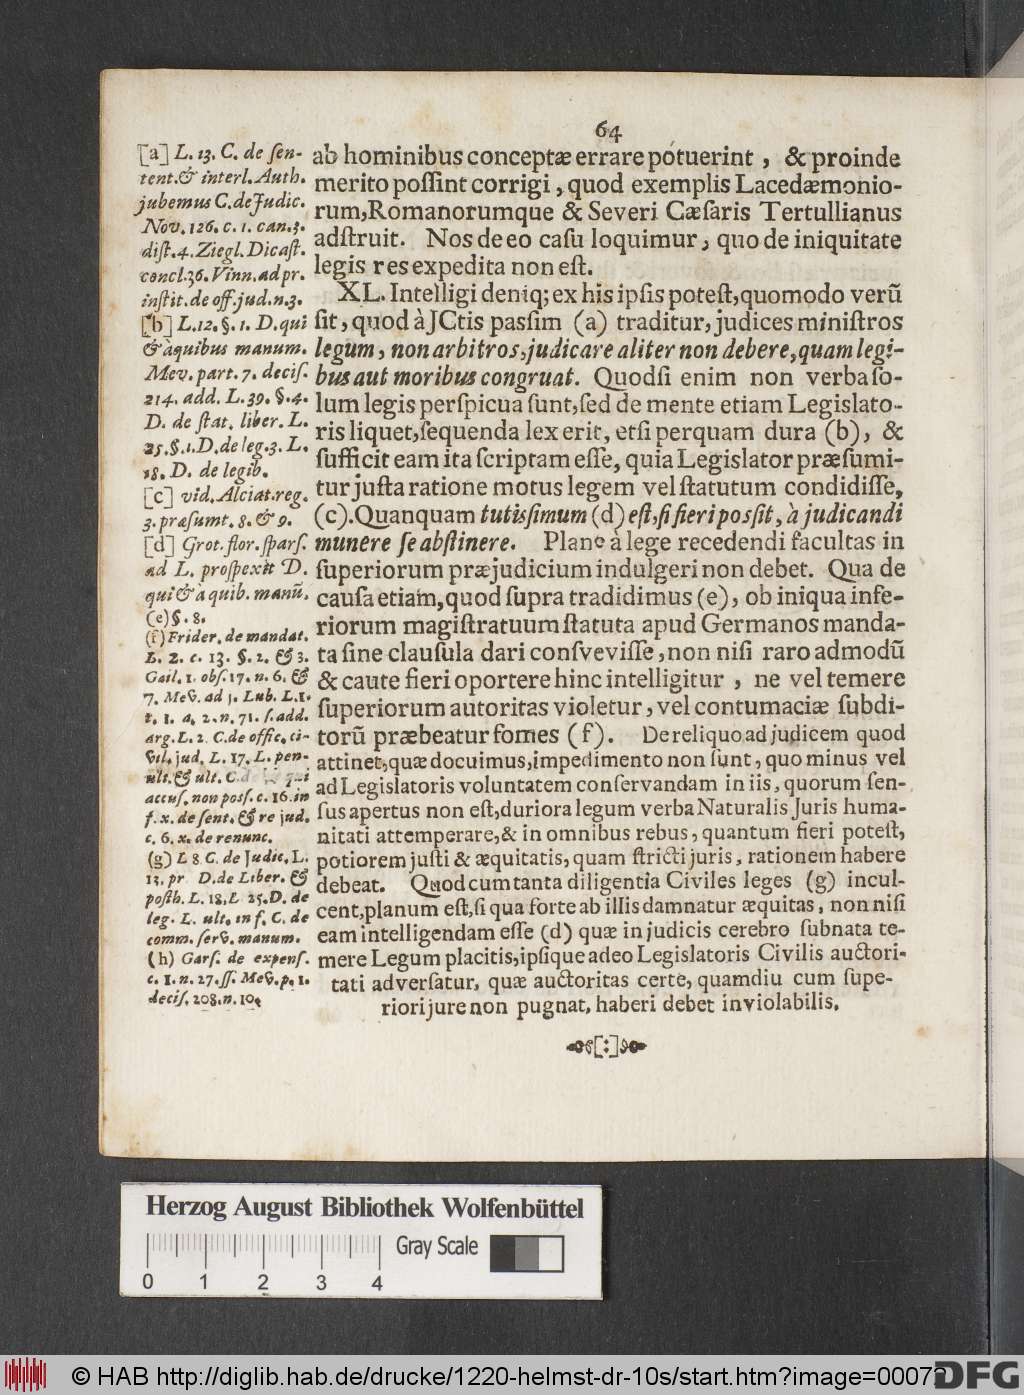 64
[a] L. 13. C. de ſen-
tent.& interl. Auth.
jubemus C. de Judic.
Nov. 126. c. 1. can. 3.
diſt. 4. Ziegl. Dicaſt.
concl. 36. Vinn. ad pr.
inſtit. de off. jud. n. 3.
[b] L. 12. §. 1. D. qui
& à quibus manum.
Mev. part. 7. deciſ.
214. add. L. 39. §. 4.
D. de ſtat. liber. L.
25. §. 1. D. de leg. 3. L.
18. D. de legib.
[c] vid. Alciat. reg.
3. præſumt. 8. & 9.
[d] Grot. flor. ſparſ.
ad L. proſpexit D.
qui & à quib. manũ.
(e) §. 8.
(f) Frider. de mandat.
L. 2. c. 13. §. 2. & 3.
Gail. 1. obſ. 17. n. 6. &
7. Mev. ad j. Lub. L. 1.
t. 1. a. 2. n. 71. ſ. add.
arg. L. 2. C. de offic. ci-
vil. jud. L. 17. L. pen-
ult. & ult. C. qui
accuſ. non poſſ. c. 16. in
f. x. de ſent. & re jud.
c. 6. x. de renunc.
(g) L 8 C. de Judic. L.
13. pr D. de Liber. &
poſth. L. 18. L 25. D. de
leg. L. ult. in f. C. de
comm. ſerv. manum.
(h) Garſ. de expenſ.
c. 1. n. 27. ſſ. Mev. p. 1.
deciſ. 208. n. 10.
ab hominibus conceptæ errare potuerint, & proinde
merito poſſint corrigi, quod exemplis Lacedæmonio-
rum, Romanorumque & Severi Cæſaris Tertullianus
adſtruit. Nos de eo caſu loquimur, quo de iniquitate
legis res expedita non eſt.
XL. Intelligi deniq; ex his ipſis poteſt, quomodo verũ
ſit, quod à JCtis paſsim (a) traditur, judices miniſtros
legum, non arbitros, judicare aliter non debere, quam legi-
bus aut moribus congruat. Quodſi enim non verba ſo-
lum legis perſpicua ſunt, ſed de mente etiam Legislato-
ris liquet, ſequenda lex erit, etſi perquam dura (b), &
ſufficit eam ita ſcriptam eſſe, quia Legislator præſumi-
tur juſta ratione motus legem vel ſtatutum condidiſſe,
(c). Quanquam tutisſimum (d) eſt, ſi fieri posſit, à judicandi
munere ſe abſtinere. Plane à lege recedendi facultas in
ſuperiorum præjudicium indulgeri non debet. Qua de
cauſa etiam, quod ſupra tradidimus (e), ob iniqua infe-
riorum magiſtratuum ſtatuta apud Germanos manda-
ta ſine clauſula dari conſveviſſe, non niſi raro admodũ
& caute fieri oportere hinc intelligitur, ne vel temere
ſuperiorum autoritas violetur, vel contumaciæ ſubdi-
torũ præbeatur fomes (f). De reliquo ad judicem quod
attinet, quæ docuimus, impedimento non ſunt, quo minus vel
ad Legislatoris voluntatem conſervandam in iis, quorum ſen-
ſus apertus non eſt, duriora legum verba Naturalis Juris huma-
nitati attemperare, & in omnibus rebus, quantum fieri poteſt,
potiorem juſti & æquitatis, quam ſtricti juris, rationem habere
debeat. Quod cum tanta diligentia Civiles leges (g) incul-
cent, planum eſt, ſi qua forte ab illis damnatur æquitas, non niſi
eam intelligendam eſſe (d) quæ in judicis cerebro ſubnata te-
mere Legum placitis, ipſique adeo Legislatoris Civilis auctori-
tati adverſatur, quæ auctoritas certe, quamdiu cum ſupe-
riori jure non pugnat, haberi debet inviolabilis.
Herzog August Bibliothek Wolfenbüttel
Gray Scale
0 1 2 3 4
© HAB http://diglib.hab.de/drucke/1220-helmst-dr-10s/start.htm?image=00072
DFG